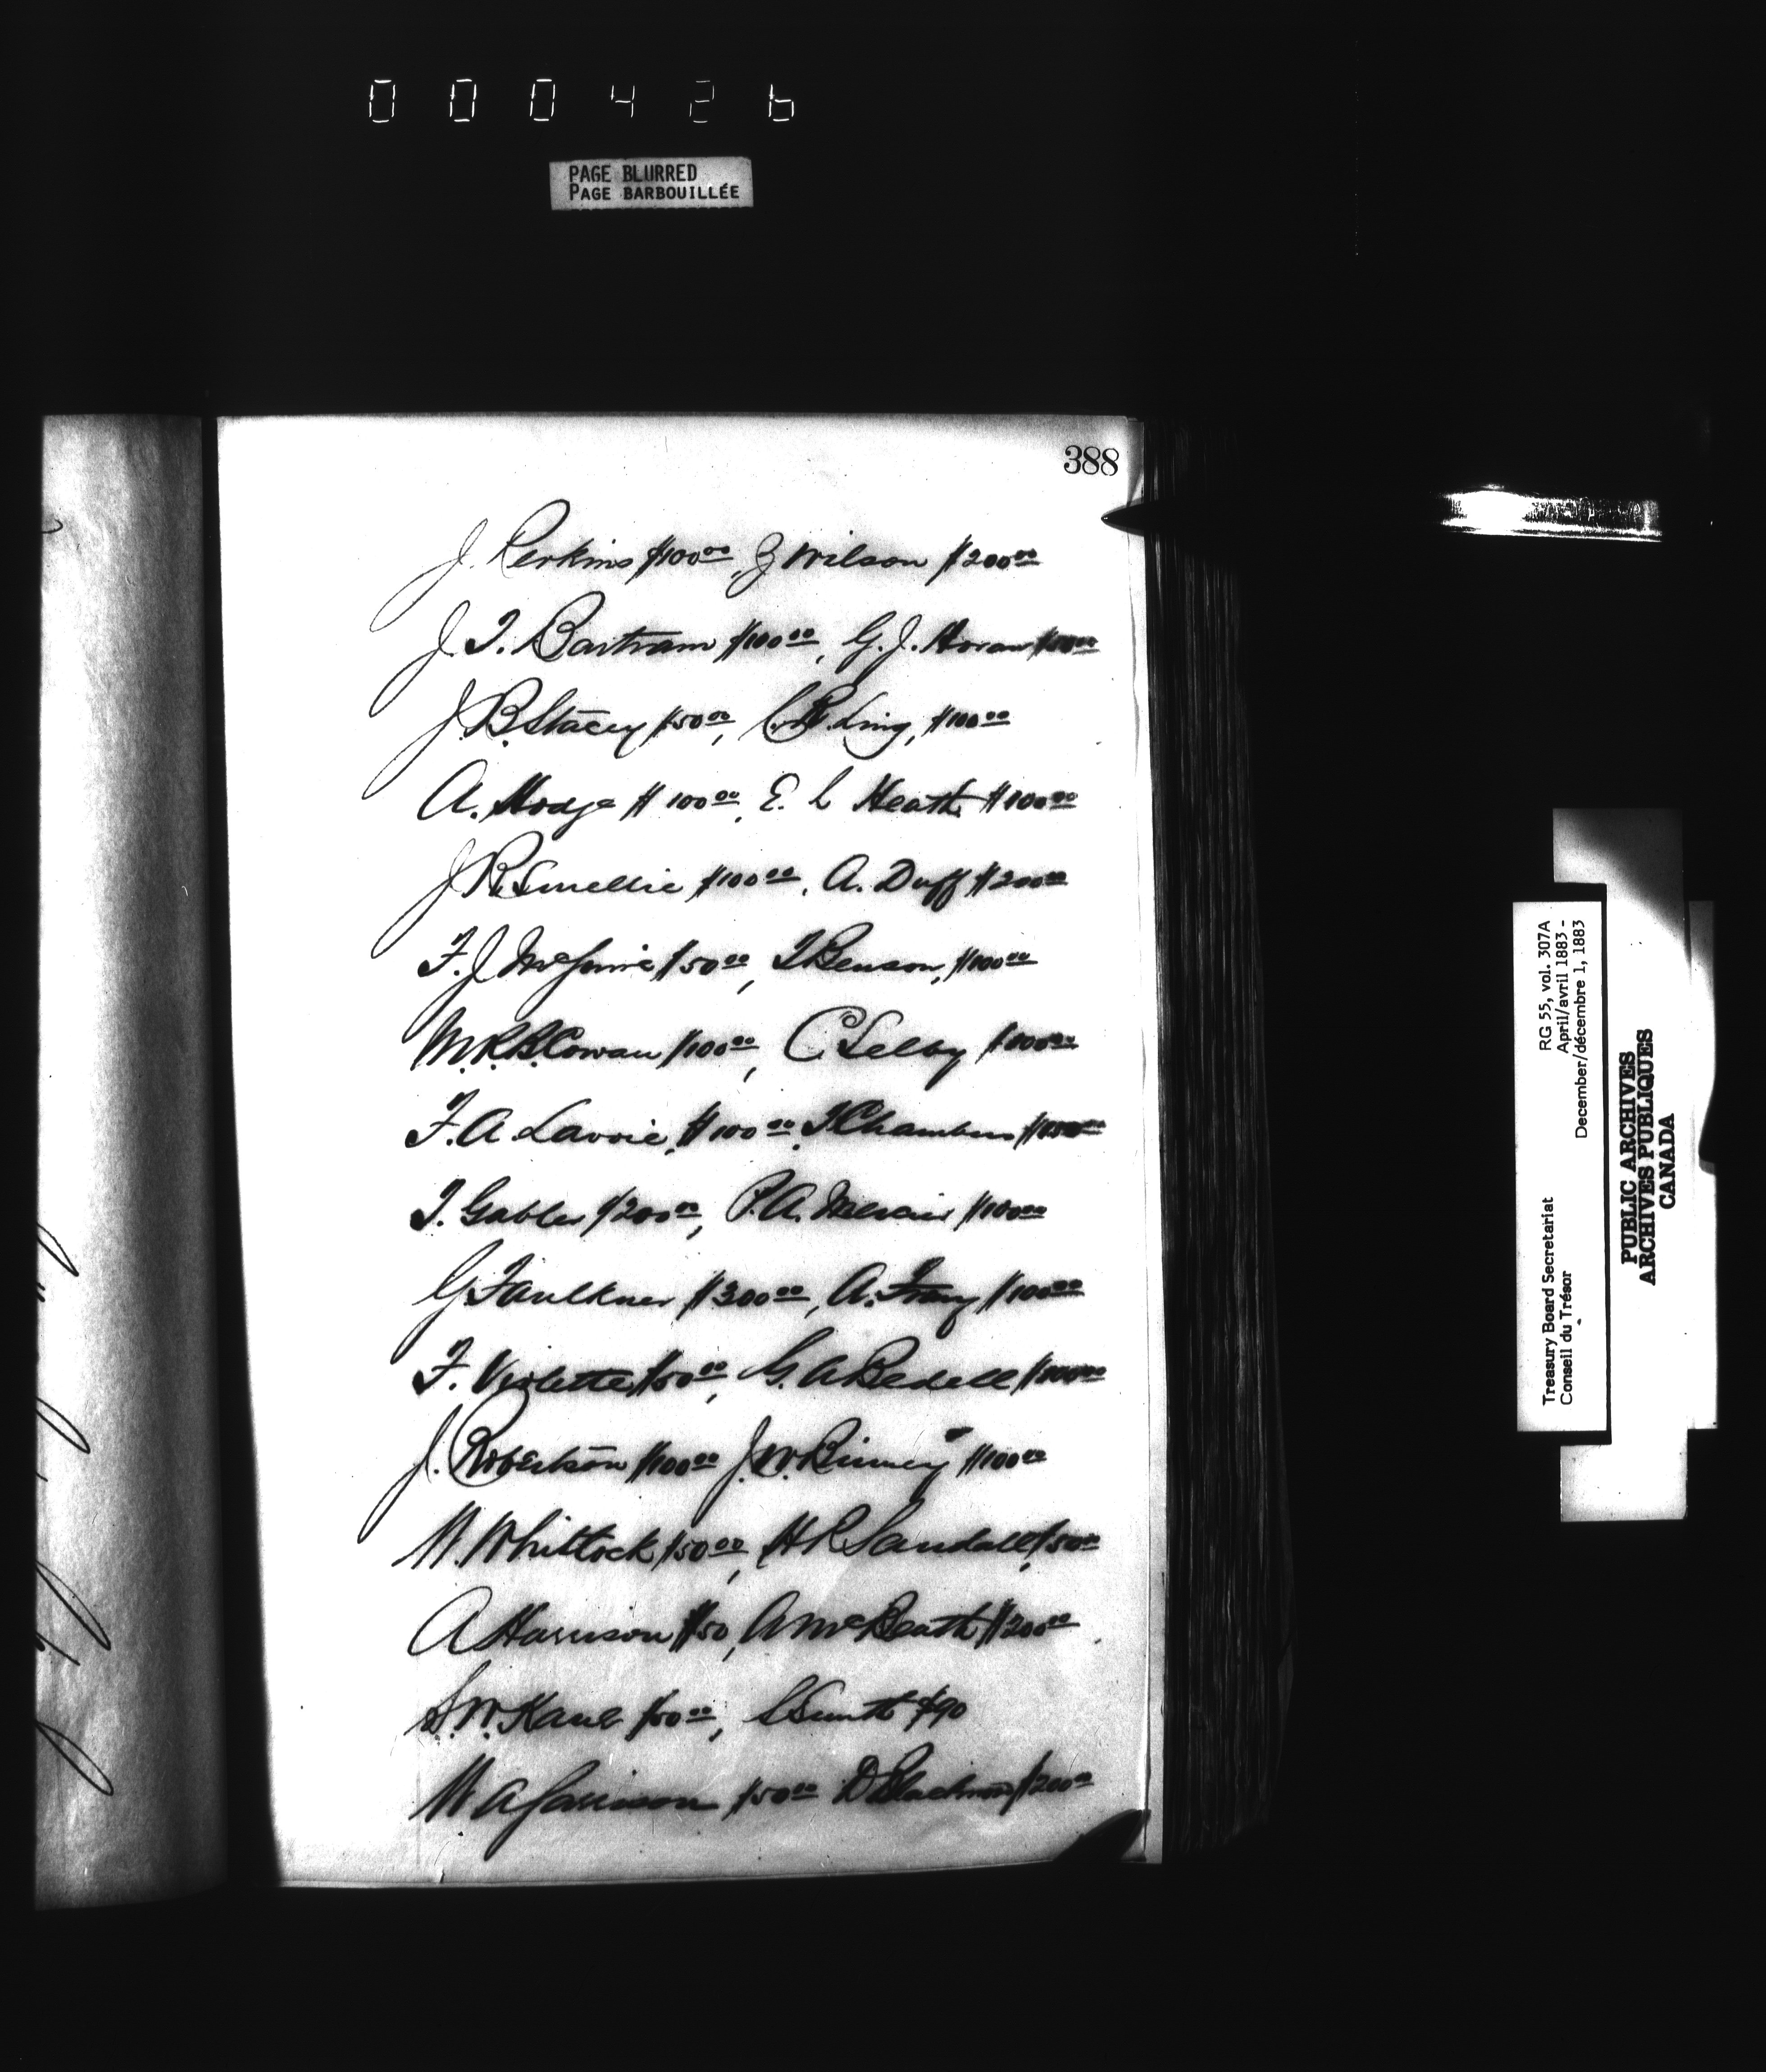 000426
PAGE BLURRED
PAGE BARBOUILLÉE
388
J. Perkins $100⁰⁰, J Wilson $200⁰⁰
J. T. Bartram $100⁰⁰, G. J. Horan
J. B. Stacey $50⁰⁰, C. R. Ling, $100⁰⁰
A. Hodge $100⁰⁰, E. L Heath $100⁰⁰
J R Smellie $100⁰⁰, A. Duff $200⁰⁰
F. J $50⁰⁰, T Benson, $100⁰⁰
M. R. B. Cowan $100⁰⁰, C Selby
F. A Lavoie, $100⁰⁰, T Chambers
J. Gabler $200⁰⁰, P. A. $100⁰⁰
G Faulkner $300⁰⁰, A. $100⁰⁰
F. Violette $50⁰⁰, G. A Bedell $100⁰⁰
J. Robertson $100⁰⁰ J. W. Binney $100⁰⁰
W. Whitlock $50⁰⁰, H R Sandall, $50⁰⁰
A Harrison $50, A McBeath $200⁰⁰
S. W. Kane $50⁰⁰, Smith $90
W. A Garrison $50⁰⁰ $200⁰⁰
Treasury Board Secretariat RG 55, vol. 307A
Conseil du Trésor April/avril 1883 -
December/décembre 1, 1883
PUBLIC ARCHIVES
ARCHIVES PUBLIQUES
CANADA